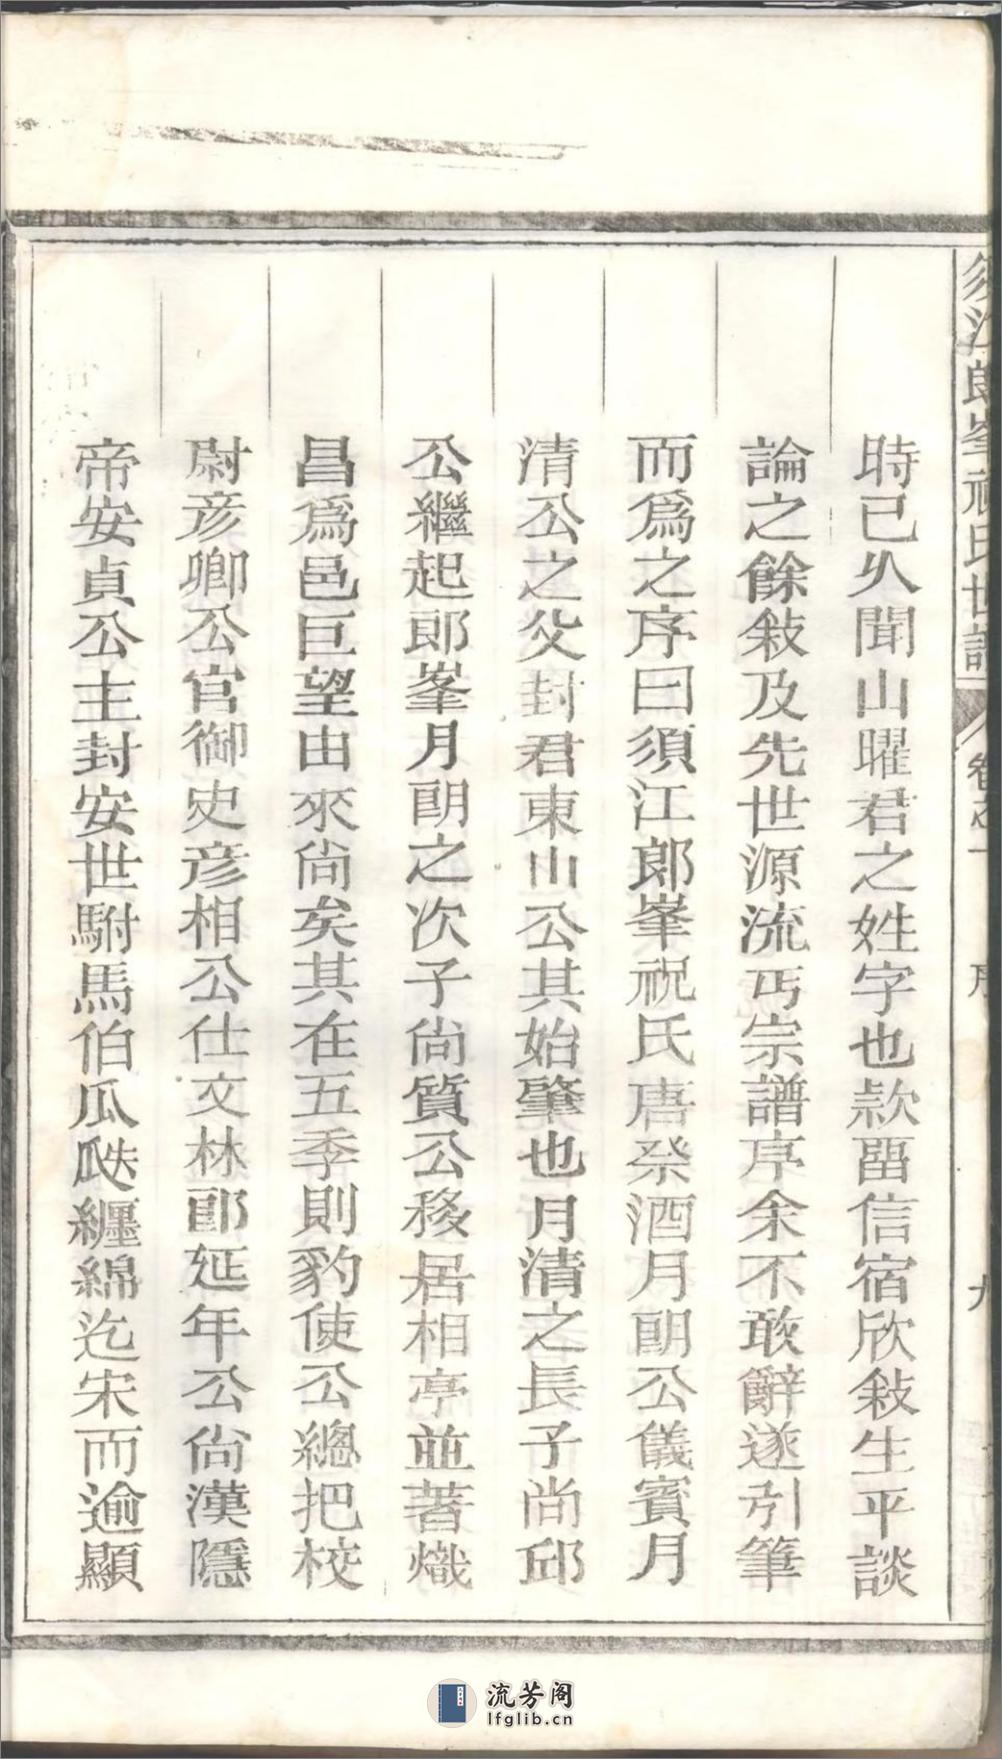 須江郎峯祝氏世譜 卷之一 序 九
時已久聞山曜君之姓字也款畱信宿欣敍生平談
論之餘敍及先世源流丐宗譜序余不敢辭遂引筆
而爲之序曰須江郎峯祝氏唐祭酒月朗公儀賓月
清公之父封君東山公其始肇也月清之長子尚邱
公繼起郎峯月朗之次子尚質公移居相亭並著熾
昌爲邑巨望由來尚矣其在五季則豹使公總把校
尉彦卿公官御史彦相公仕文林郎延年公尚漢隱
帝安貞公主封安世駙馬伯瓜瓞纏綿迄宋而逾顯
流芳阁
lfglib.cn